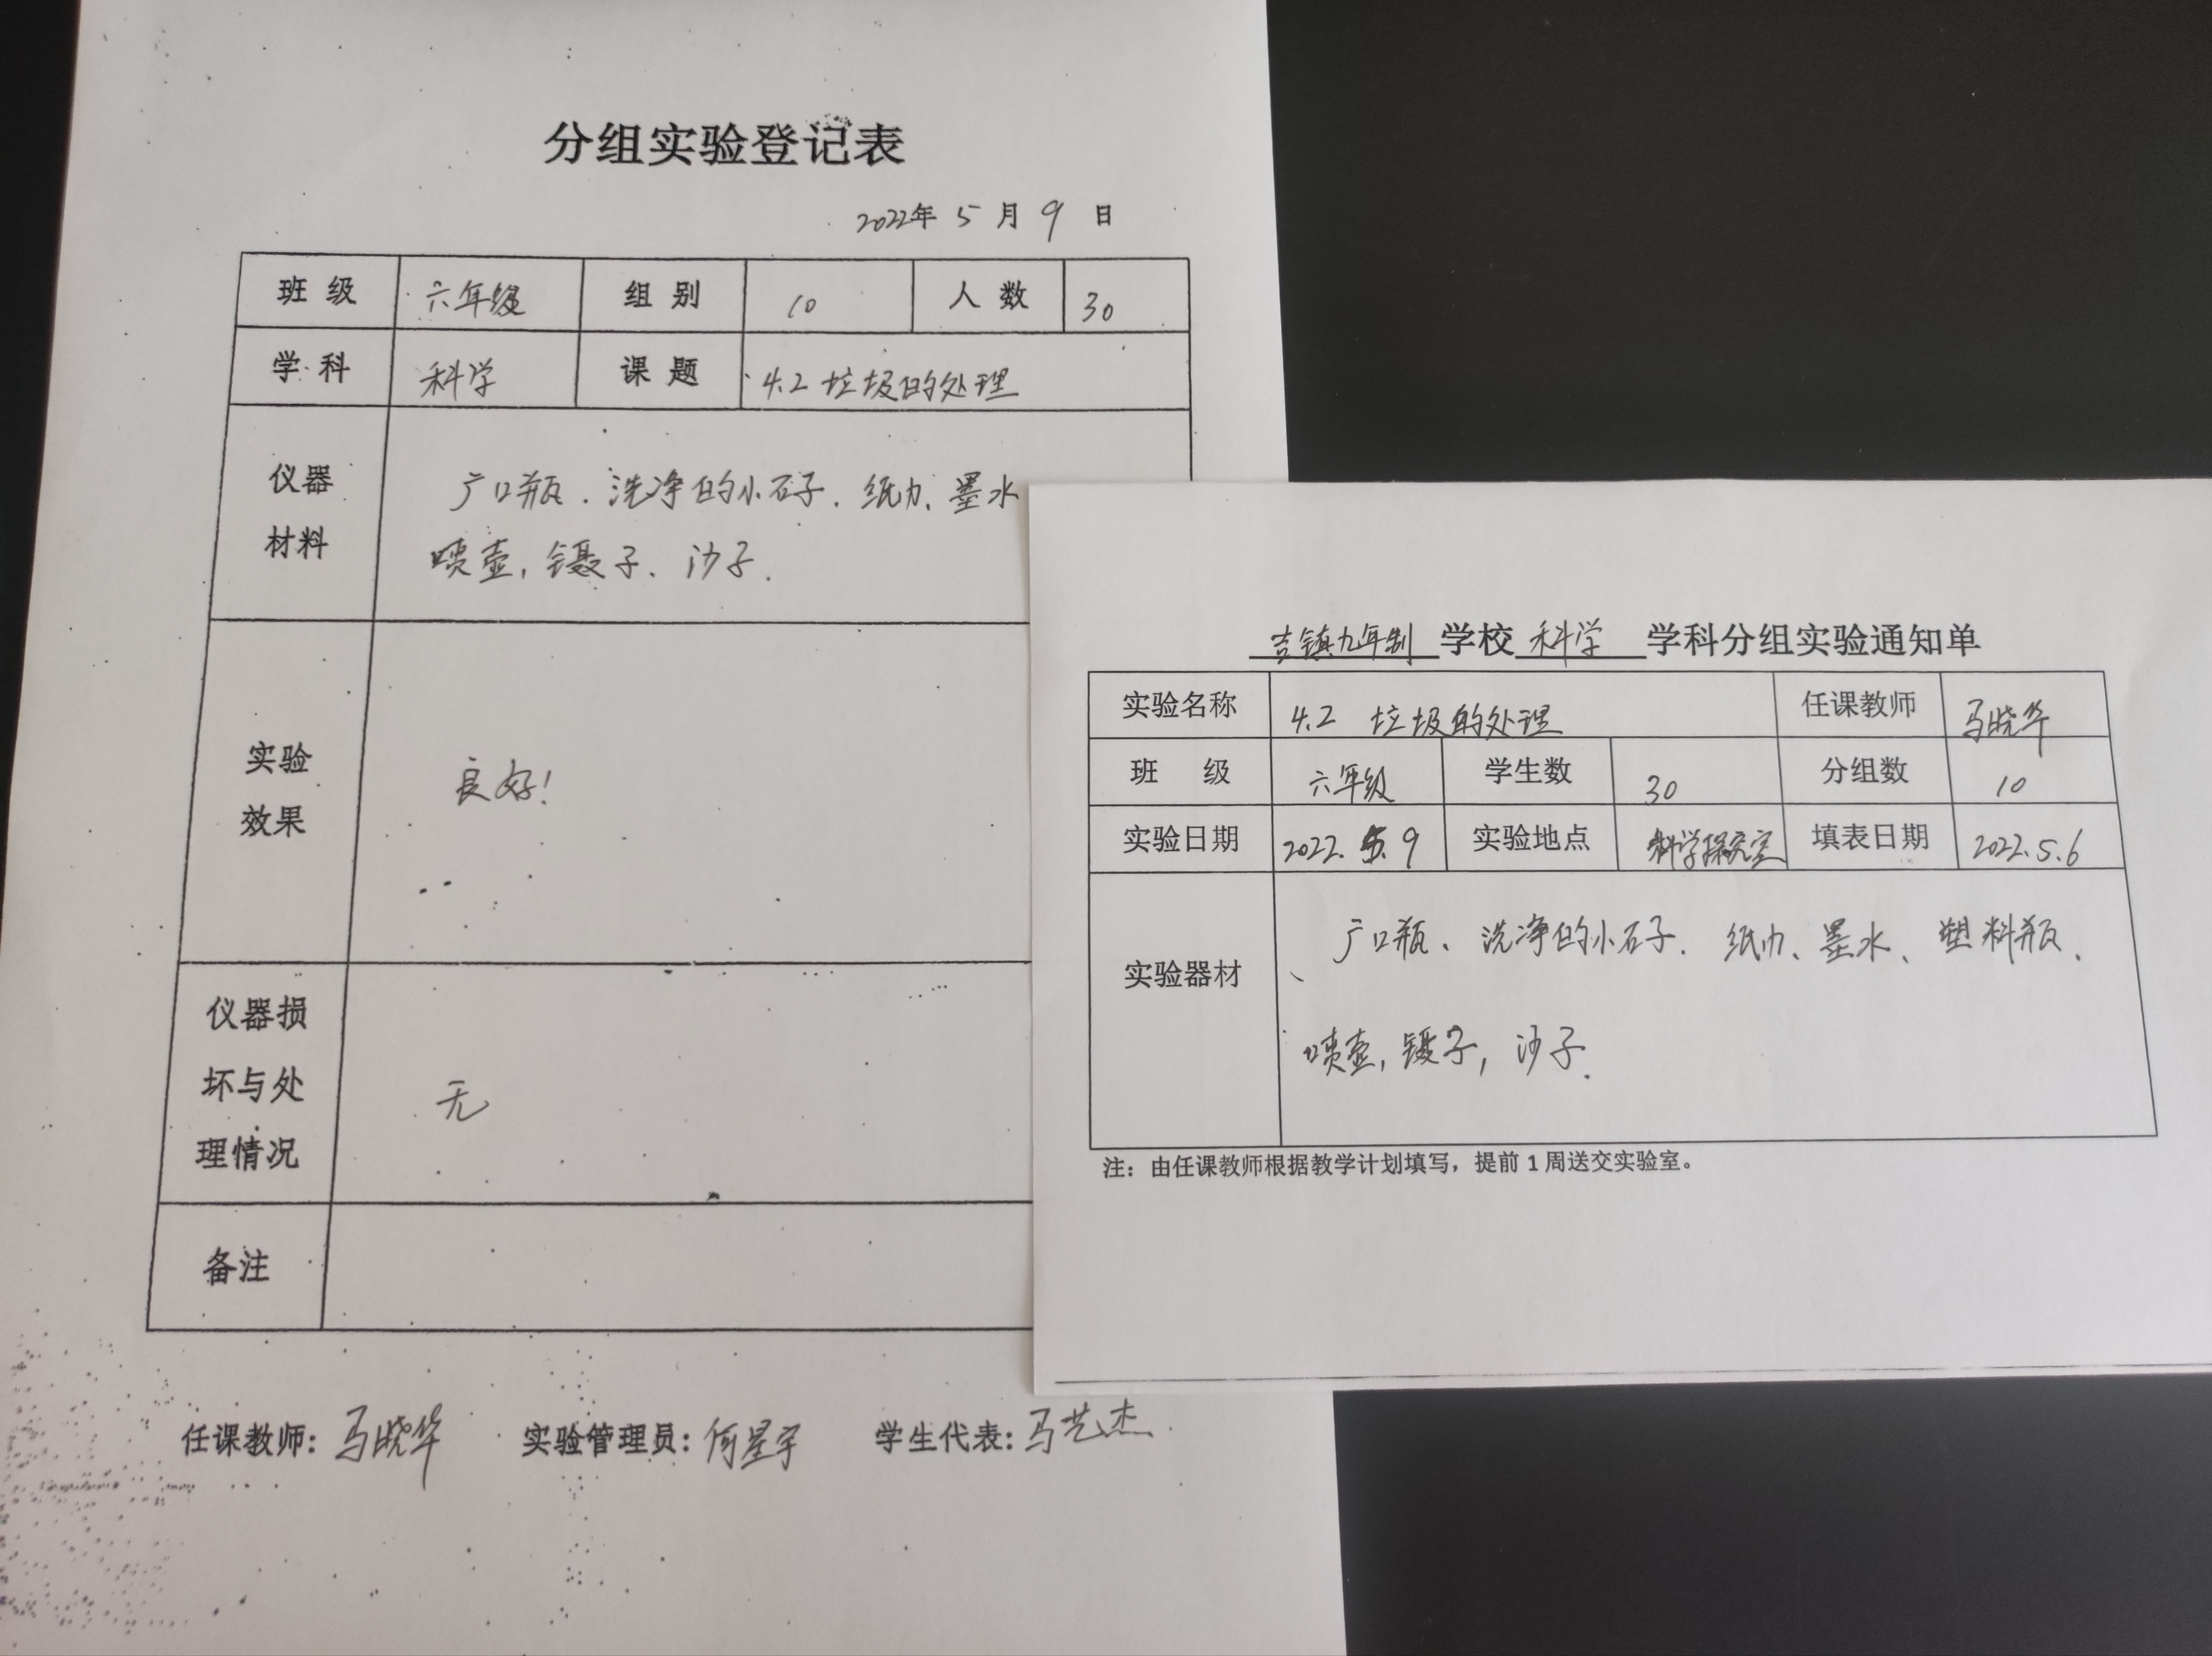 分组实验登记表
2022年 5 月 9 日
班 级 六年级 组 别 10 人 数 30
学 科 科学 课 题 4.2 垃圾的处理
仪器
材料
广口瓶、洗净的小石子、纸巾、墨水
喷壶,镊子、沙子.
实验
效果
良好!
仪器损
坏与处
理情况
无
备注
任课教师: 马晓华 实验管理员: 何星宇 学生代表: 马艺杰
吉镇九年制 学校 科学 学科分组实验通知单
实验名称 4.2 垃圾的处理 任课教师 马晓华
班 级 六年级 学生数 30 分组数 10
实验日期 2022.5.9 实验地点 科学探究室 填表日期 2022.5.6
实验器材
广口瓶、洗净的小石子、纸巾、墨水、塑料瓶、
喷壶,镊子,沙子.
注:由任课教师根据教学计划填写,提前1周送交实验室。